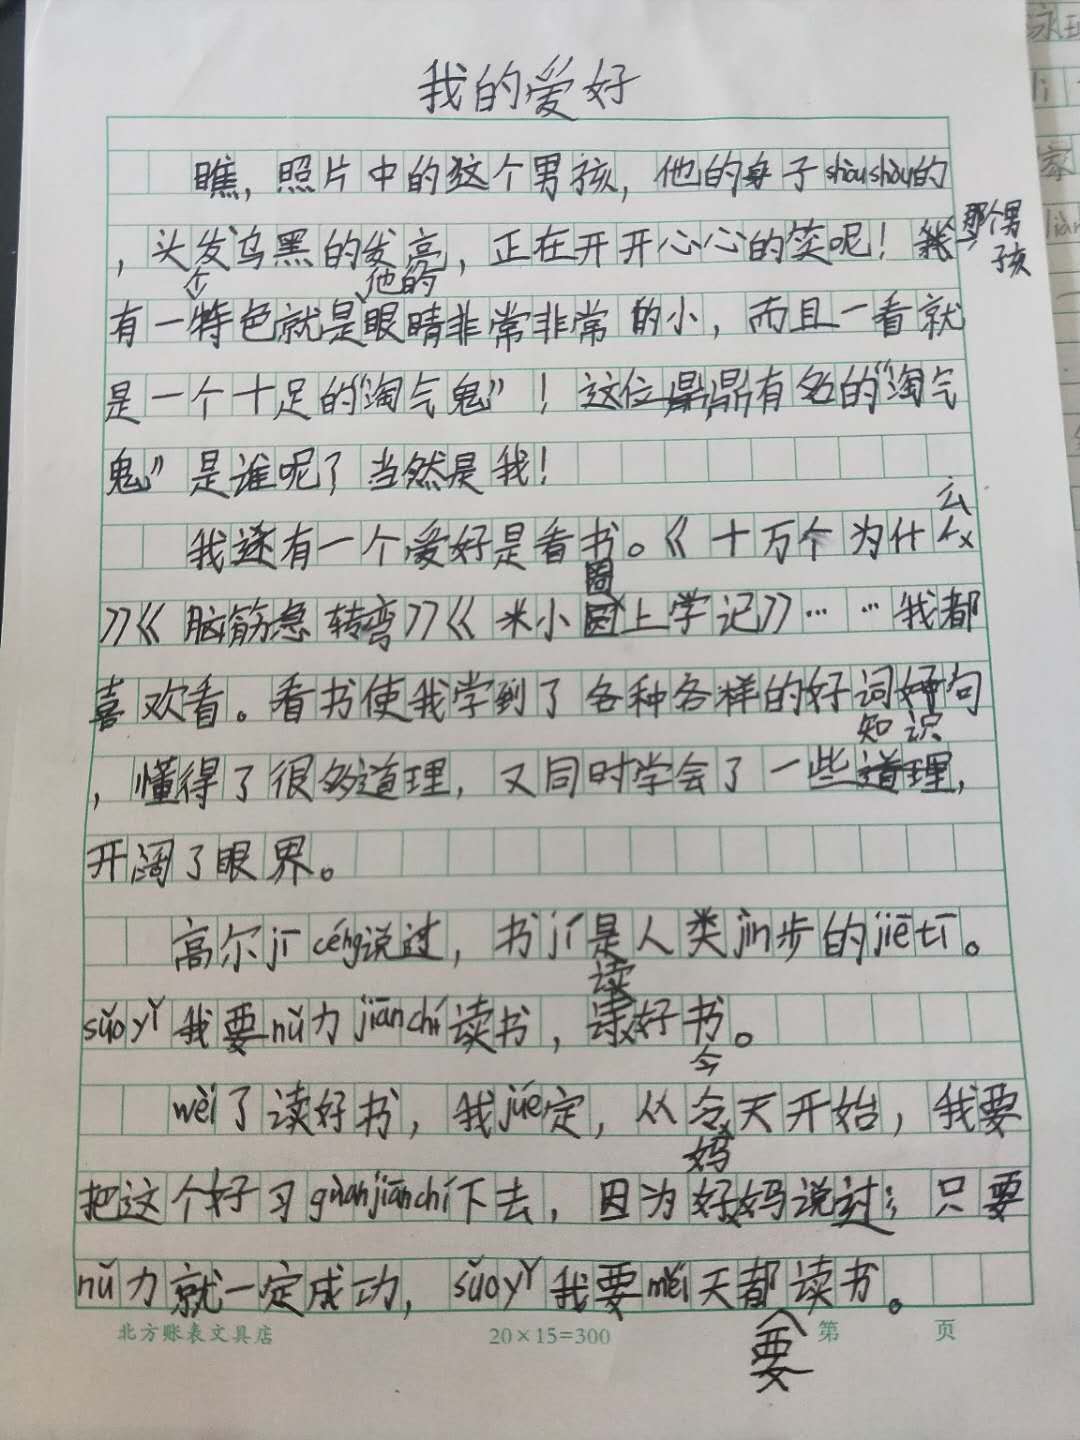 我的爱好
瞧，照片中的这个男孩，他的身子shòushòu的
，头发乌黑的发亮，正在开开心心的笑呢！那个男孩
有一个特色就是他的眼睛非常非常的小，而且一看就
是一个十足的“淘气鬼”！这位鼎鼎有名的“淘气
鬼”是谁呢？当然是我！
我还有一个爱好是看书。《十万个为什么
》《脑筋急转弯》《米小圈上学记》……我都
喜欢看。看书使我学到了各种各样的好词好句
，懂得了很多道理，又同时学会了一些知识，
开阔了眼界。
高尔jī céng说过，书jí是人类jìn步的jiētī。
suǒyǐ我要nǔ力jiānchí读书，读好书。
wèi了读好书，我jué定，从今天开始，我要
把这个好习guànjiānchí下去，因为妈妈说过；只要
nǔ力就一定成功，suǒyǐ我要měi天都要读书。
北方账表文具店 20×15=300 第 页
家